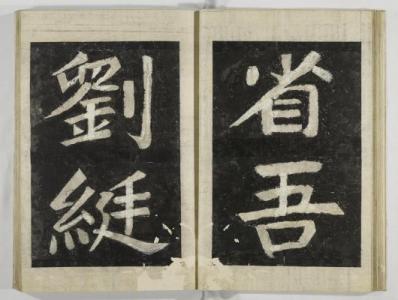 省吾
劉綎